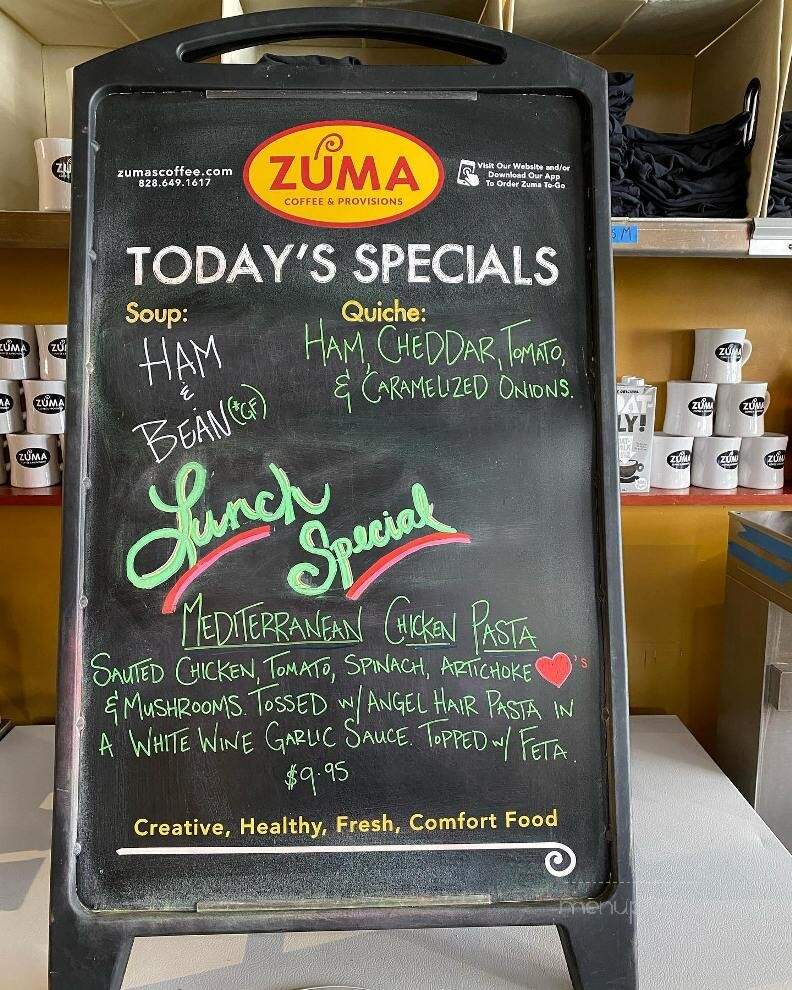 zumascoffee.com
828.649.1617
ZUMA
COFFEE & PROVISIONS
Visit Our Website and/or
Download Our App
To Order Zuma To-Go
TODAY'S SPECIALS
Soup:
HAM
&
BEAN (*GF)
Quiche:
HAM, CHEDDAR, TOMATO,
& CARAMELIZED ONIONS.
Lunch
Special
MEDITERRANEAN CHICKEN PASTA
SAUTED CHICKEN, TOMATO, SPINACH, ARTICHOKE ❤'S
& MUSHROOMS. TOSSED W/ ANGEL HAIR PASTA IN
A WHITE WINE GARLIC SAUCE. TOPPED W/ FETA.
$9.95
Creative, Healthy, Fresh, Comfort Food
M
LY!
ZUMA
ZUMA
ZUMA
ZUMA
ZUMA
ZUMA
ZUMA
ZUMA
ZUMA